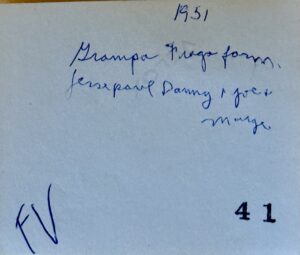 1951
Grampa Frago farm.
Danny + Joe +
Marge
FV
41